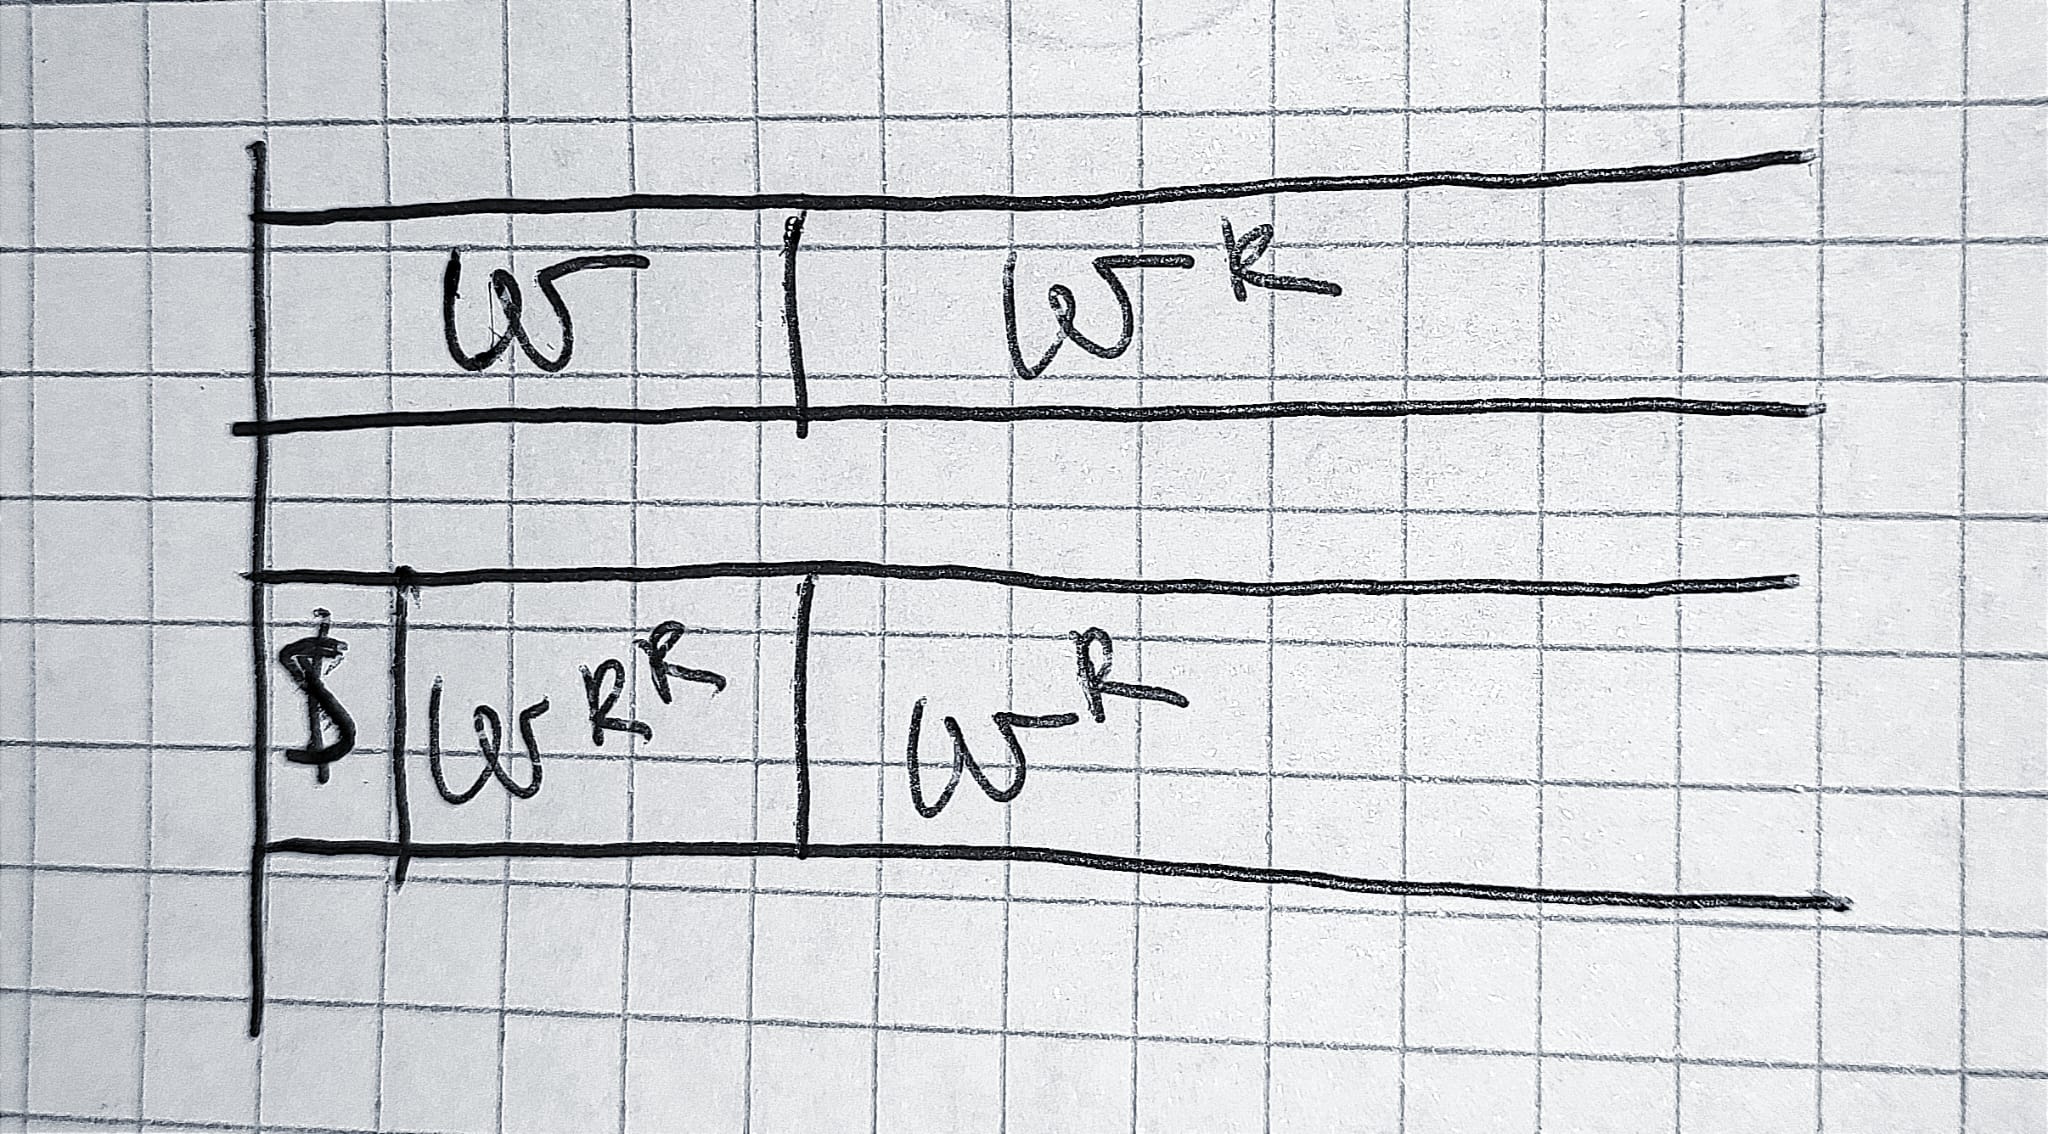 w w^R
$ w^R^R w^R